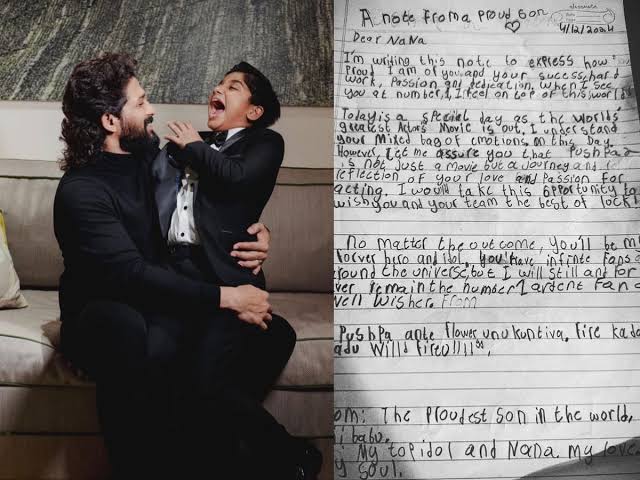 A note from a proud son
4/12/2024
Dear Nana
I'm writing this note to express how
proud I am of you and your sucess, hard
work, passion and dedication. When I see
you at number 1, I feel on top of this world
Today is a special day as the worlds'
greatest Actors Movie is out. I understand
your Mixed bag of emotions on this Day.
However, let me assure you that Pushpa 2
is not Just a movie but a Journey and
reflection of your love and Passion for
acting. I would take this opportunity to
wish you and your team the best of lock!
No matter the outcome, you'll be my
forever hero and idol. you'have infinite Fans
around the universe, but I will still and for
ver remain the number 1 ardent Fan
well wisher. From
Pushpa ante flower unukuntiva. Fire kada
adu Willd fire
om: The Proudest son in the world,
i babu.
My top idol and Nana my love
y soul.